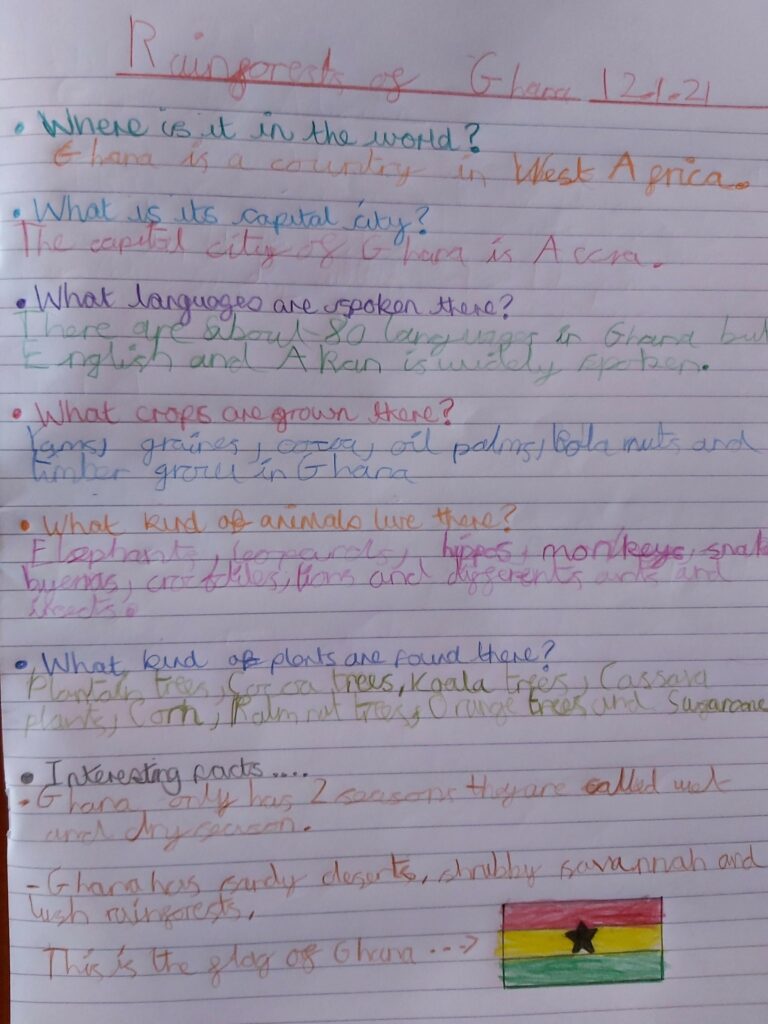 Rainforests of Ghana 12.1.21
• Where is it in the world?
Ghana is a country in West Africa.
• What is its capital city?
The capital city of Ghana is Accra.
• What languages are spoken there?
There are about 80 languages in Ghana but
English and Akan is widely spoken.
• What crops are grown there?
Yams, graines, cocoa, oil palms, kola nuts and
timber grow in Ghana
• What kind of animals live there?
Elephants, leopards, hippos, monkeys, snak
hyenas, crocodiles, lions and differents ants and
• What kind of plants are found there?
Plantain trees, Cocoa trees, Koala trees, Cassava
plants, Corn, Palm nut trees, Orange trees and Sugarcane
• Interesting facts....
- Ghana only has 2 seasons they are called wet
and dry season.
- Ghana has sandy deserts, shrubby savannah and
lush rainforests.
This is the flag of Ghana --->